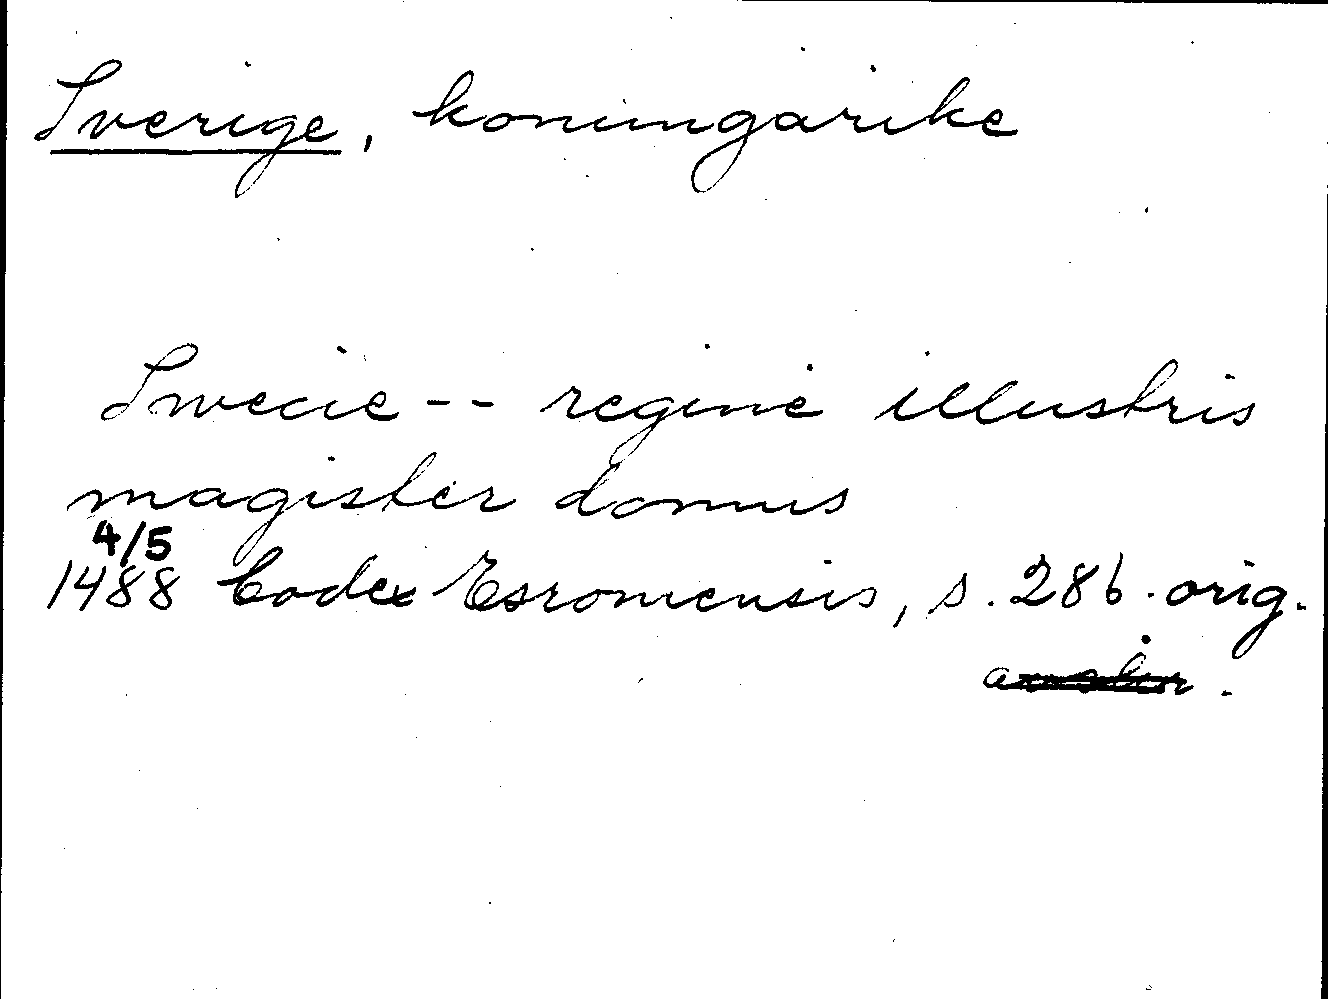 Sverige, konungarike
Swecie -- regine illustris
magister domus
4/5
1488 Codex Esromensis, s. 286. orig.